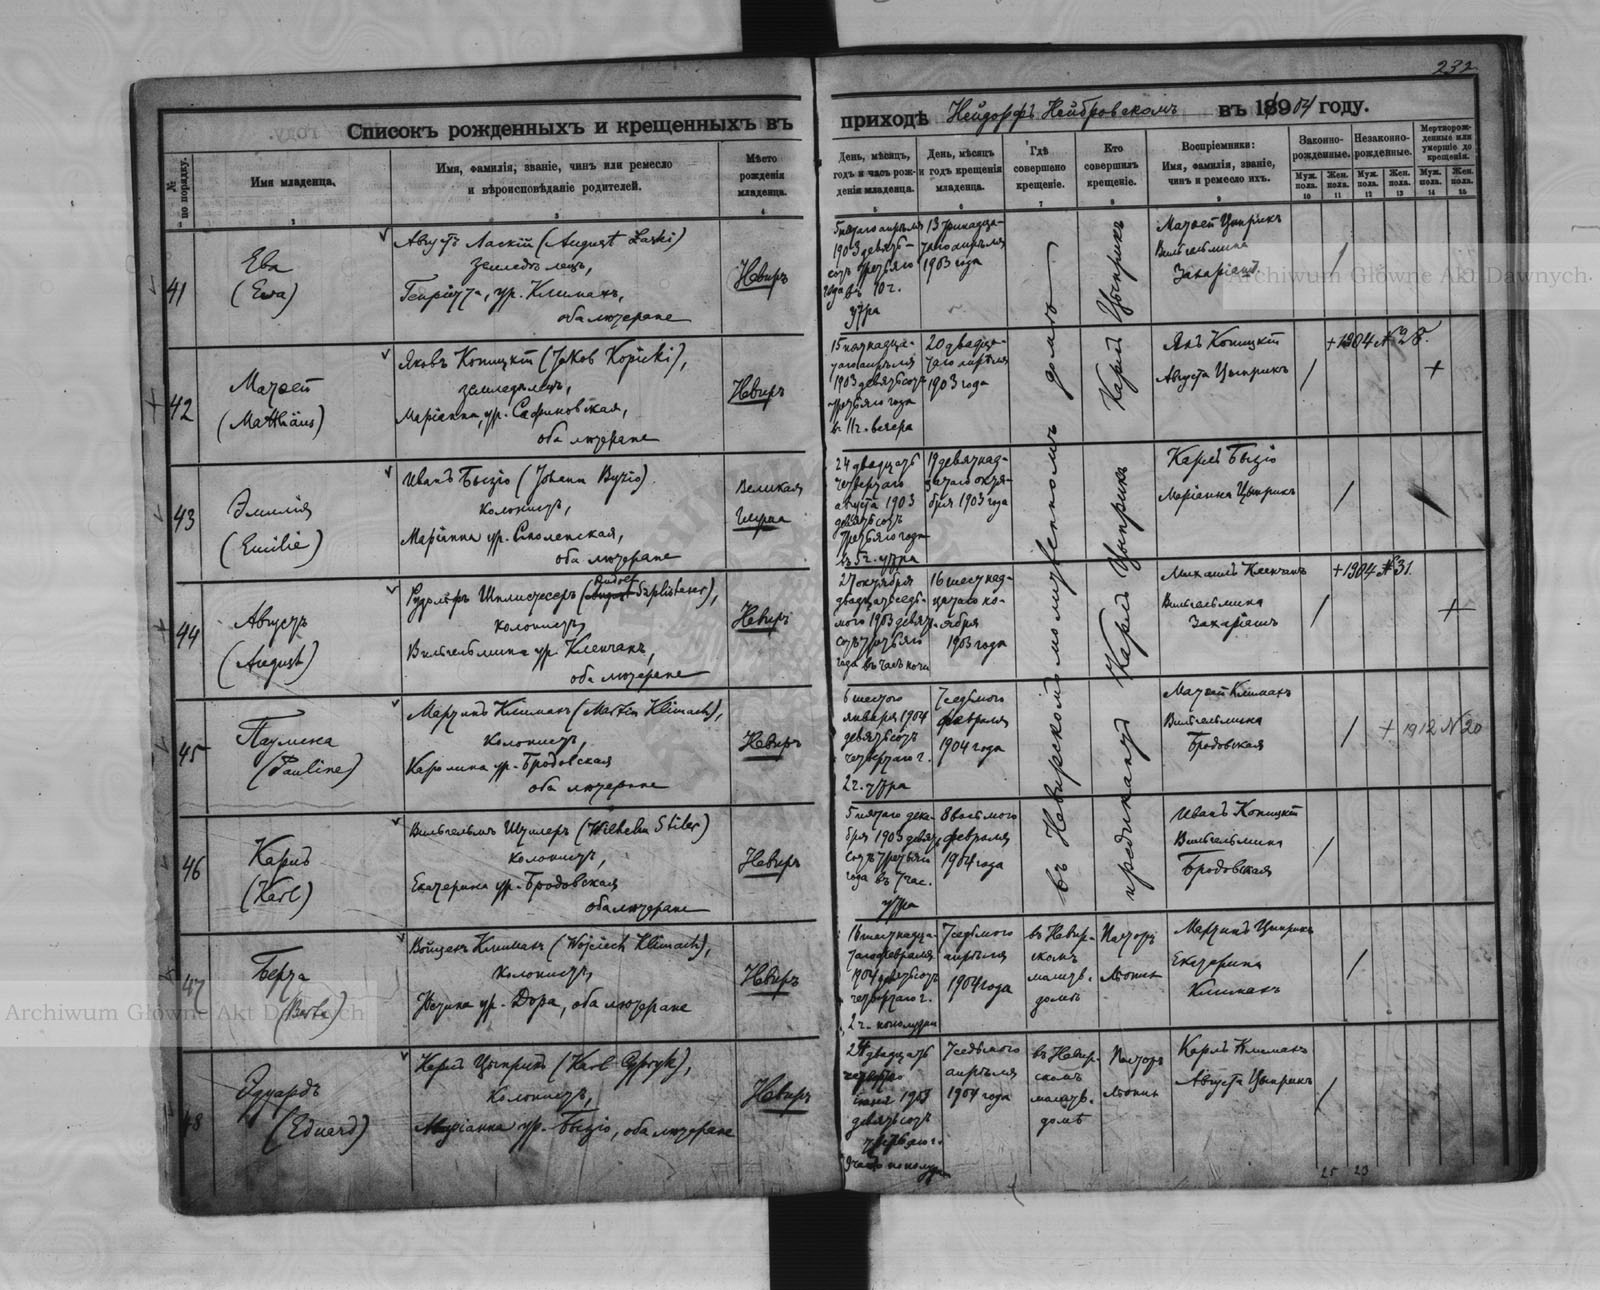 232.
Списокъ рожденныхъ и крещенныхъ въ приходѣ Нейдорфъ Нейбровскомъ въ 1904 году.
№ по порядку.
Имя младенца.
Имя, фамилія, званіе, чинъ или ремесло
и вѣроисповѣданіе родителей.
Мѣсто
рожденія
младенца.
День, мѣсяцъ,
годъ и часъ рож-
денія младенца.
День, мѣсяцъ
и годъ крещенія
младенца.
Гдѣ
совершено
крещеніе.
Кто
совершилъ
крещеніе.
Воспріемники:
Имя, фамилія, званіе,
чинъ и ремесло ихъ.
Законно-
рожденные.
Незаконно-
рожденные.
Мертворож-
денные или
умершіе до
крещенія.
Муж. пола.
Жен. пола.
Муж. пола.
Жен. пола.
Муж. пола.
Жен. пола.
1 2 3 4 5 6 7 8 9 10 11 12 13 14 15
41
Ева
(Ewa)
Августъ Ласкій (August Laski)
земледѣлецъ,
Генріетта, ур. Климахъ,
оба лютеране
Невиръ
5 пятаго апрѣля
1903 девять-
сотъ третьяго
года въ 10 ч.
утра
13 тринадца-
таго апрѣля
1903 года
въ Невирскомъ молитвенномъ домѣ
предикантъ Карлъ Цыприкъ Карлъ Цыприкъ
Матвей Цыприкъ
Вильгельмина
Захаріашъ
42
Матвей
(Matthäus)
Яковъ Копицкій (Jakob Kopicki),
земледѣлецъ,
Маріанна, ур. Сафиновская,
оба лютеране
Невиръ
15 пятнадца-
таго апрѣля
1903 девятьсотъ
третьяго года
въ 11 ч. вечера
20 двадца-
таго апрѣля
1903 года
Янъ Копицкій
Августа Цыприкъ
+ 1904 № 28.
43
Эмилія
(Emilie)
Иванъ Бызіо (Johann Byzio)
колонистъ,
Маріанна ур. Смоленская,
оба лютеране
Великая
Глуша
24 двадцать
четвертаго
августа 1903
девятьсотъ
третьяго года
въ 5 ч. утра
19 девятнад-
цатаго октя-
бря 1903 года
Карлъ Бызіо
Маріанна Цыприкъ
44
Августъ
(August)
Рудольфъ Шплистесеръ (Rudolf Szplisteser),
колонистъ,
Вильгельмина ур. Кленчакъ,
оба лютеране
Невиръ
27 октября
двадцать седь-
мого 1903 девять-
сотъ третьяго
года въ часъ ночи
16 шестнад-
цатаго но-
ября
1903 года
Михаилъ Кленчакъ
Вильгельмина
Захаріашъ
+ 1904 № 31.
45
Паулина
(Pauline)
Мартинъ Климахъ (Martin Klimach),
колонистъ,
Каролина ур. Бродовская
оба лютеране
Невиръ
6 шестого
января 1904
девятьсотъ
четвертаго г.
2 ч. утра
7 седьмого
февраля
1904 года
Матвей Климахъ
Вильгельмина
Бродовская
+ 1912 N 20
46
Карлъ
(Karl)
Вильгельмъ Штилеръ (Wilhelm Stiler)
колонистъ,
Екатерина ур. Бродовская
оба лютеране
Невиръ
5 пятаго дека-
бря 1903 девять-
сотъ третьяго
года въ 7 час.
утра
8 восьмого
февраля
1904 года
Иванъ Копицкій
Вильгельмина
Бродовская
47
Берта
(Berta)
Войцехъ Климахъ (Wojciech Klimach),
колонистъ,
Юстина ур. Дора, оба лютеране
Невиръ
16 шестнадца-
таго февраля
1904 девятьсотъ
четвертаго г.
2 ч. пополудни
7 седьмого
апрѣля
1904 года
въ Невир-
скомъ
молитв.
домѣ
Пасторъ
Мартинъ Цыприкъ
Екатерина
Климахъ
48
Эдуардъ
(Eduard)
Карлъ Цыприкъ (Karl Cypryk),
колонистъ,
Маріанна ур. Бызіо, оба лютеране
Невиръ
24 двадцать
четвертаго
іюня 1903
девятьсотъ
третьяго г.
7 седьмого
апрѣля
1904 года
въ Невир-
скомъ
молитв.
домѣ
Пасторъ
Карлъ Климахъ
Августа Цыприкъ
25 23
Archiwum Główne Akt Dawnych
Archiwum Główne Akt Dawnych